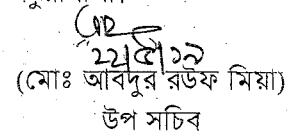 ২২/৫/১৯
(মোঃ আবদুর রউফ মিয়া)
উপ সচিব